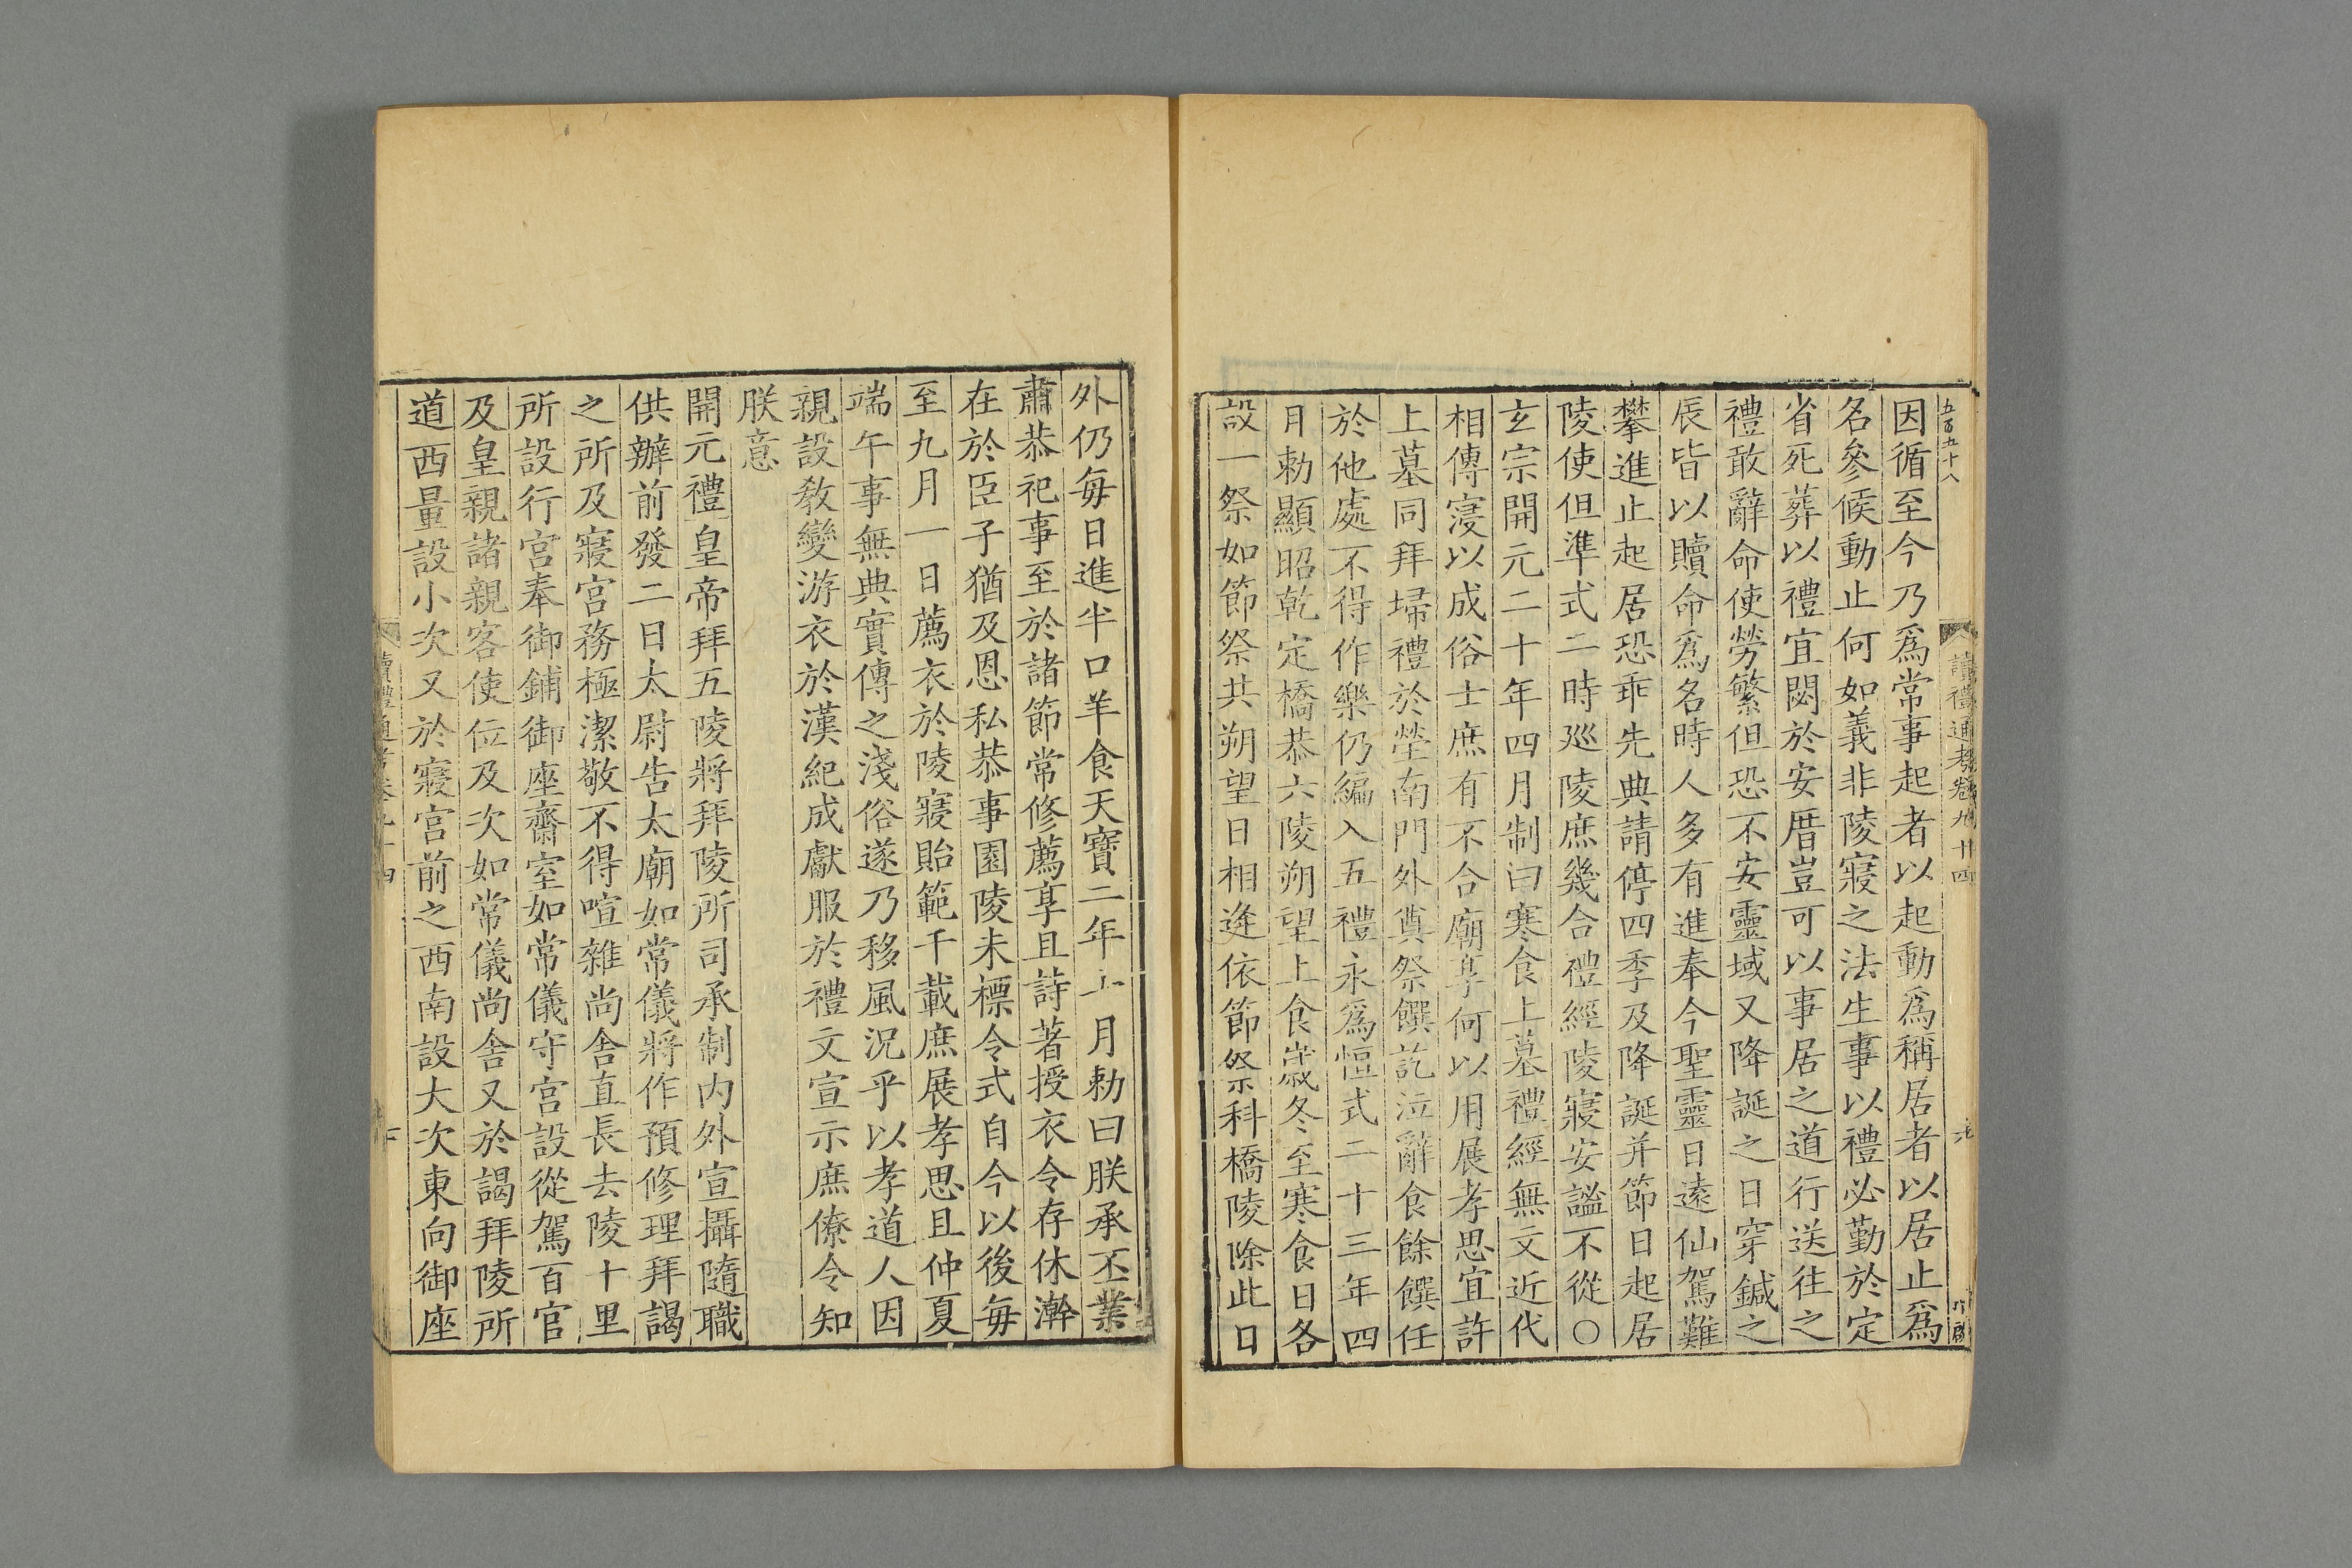 五百九十八
讀禮通考卷九十四
因循至今乃爲常事起者以起動爲稱居者以居止爲
名參候動止何如義非陵寢之法生事以禮必勤於定
省死葬以禮宜閟於安厝豈可以事居之道行送往之
禮敢辭命使勞繁但恐不安靈域又降誕之日穿鍼之
辰皆以贖命爲名時人多有進奉今聖靈日遠仙駕難
攀進止起居恐乖先典請停四季及降誕并節日起居
陵使但準式二時巡陵庶幾合禮經陵寢安謐不從〇
玄宗開元二十年四月制曰寒食上墓禮經無文近代
相傳寖以成俗士庶有不合廟享何以用展孝思宜許
上墓同拜埽禮於塋南門外奠祭饌訖泣辭食餘饌任
於他處不得作樂仍編入五禮永爲恒式二十三年四
月勅顯昭乾定橋恭六陵朔望上食歲冬至寒食日各
設一祭如節祭共朔望日相逢依節祭科橋陵除此日
外仍每日進半口羊食天寶二年 月勅曰朕承丕業
肅恭祀事至於諸節常修薦享且詩著授衣令存休澣
在於臣子猶及恩私恭事園陵未標令式自今以後每
至九月一日薦衣於陵寢貽範千載庶展孝思且仲夏
端午事無典實傳之淺俗遂乃移風況乎以孝道人因
親設敎變游衣於漢紀成獻服於禮文宣示庶僚令知
朕意
開元禮皇帝拜五陵將拜陵所司承制內外宣攝隨職
供辦前發二日太尉告太廟如常儀將作預修理拜謁
之所及寢宮務極潔敬不得喧雜尚舍直長去陵十里
所設行宮奉御鋪御座齋室如常儀守宮設從駕百官
及皇親諸親客使位及次如常儀尚舍又於謁拜陵所
道西量設小次又於寢宮前之西南設大次東向御座
讀禮通考卷九十四